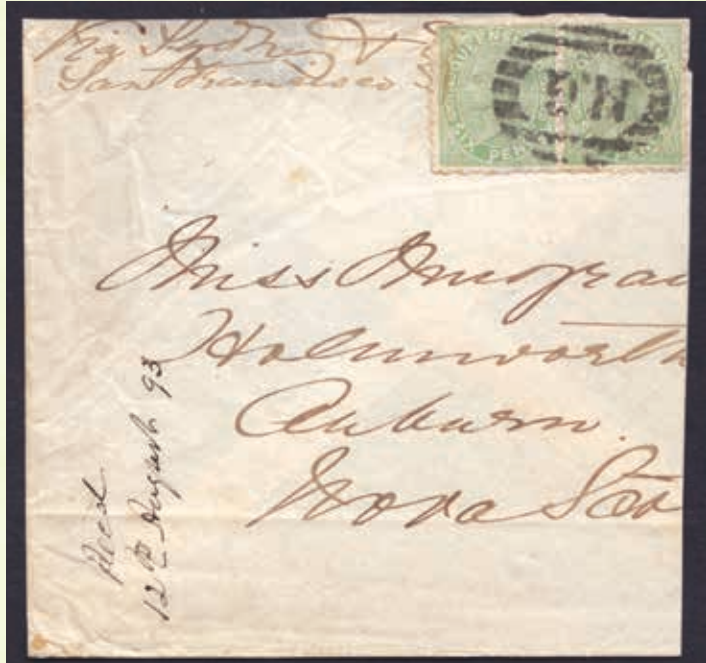 Via Sydney &
San Francisco
SIX PE
NG
Miss
Holmworth
Auburn.
Nova Sco
Recd
12th August 93